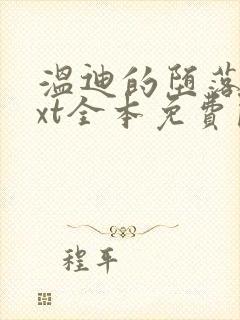 温迪的堕落
xt全本免费
程平